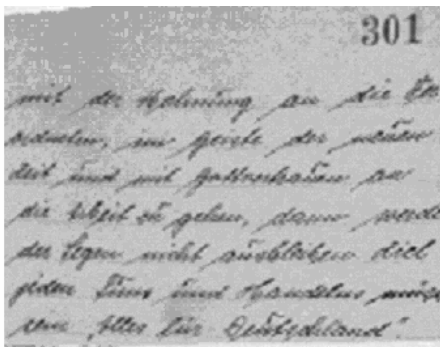 301
mit der Mahnung an die
ordneten, im Geiste der neuen
Zeit und mit Gottvertrauen an
die Arbeit zu gehen, dann werde
der Segen nicht ausbleiben
jeden Tuns und Handelns müsse
sein „Alles für Deutschland“.